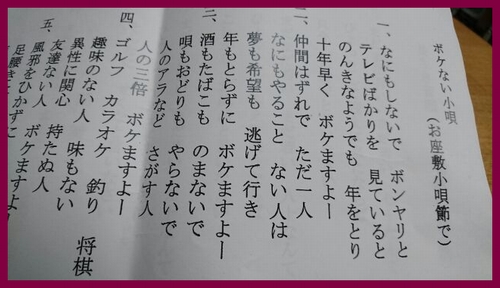 ボケない小唄
(お座敷小唄節で)
一、なにもしないで ボンヤリと
テレビばかりを 見ていると
のんきなようでも 年をとり
十年早く ボケますよー
二、仲間はずれで ただ一人
なにもやること ない人は
夢も希望も 逃げて行き
年もとらずに ボケますよー
三、酒もたばこも のまないで
唄もおどりも やらないで
人のアラなど さがす人
人の三倍 ボケますよー
四、ゴルフ カラオケ 釣り 将棋
趣味のない人 味もない
異性に関心 持たぬ人
友達ない人 ボケますよー
五、風邪をひかずに